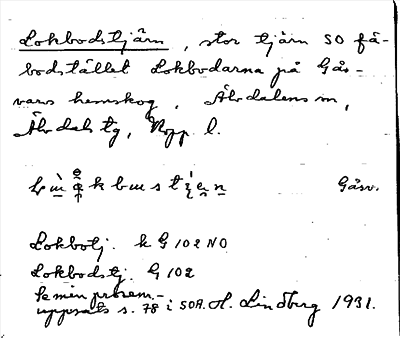 Lokbodstjärn, stor tjärn SO fä-
bodstället Lokbodarna på Gås-
vars hemskog, Älvdalens sn,
Älvdals tg, Kopp l.
Gåsv.
Lokbotj. k G 102 NO
Lokbodstj. G 102
k min prosem.-
uppsats s. 78 i SOA. H. Lindberg 1931.